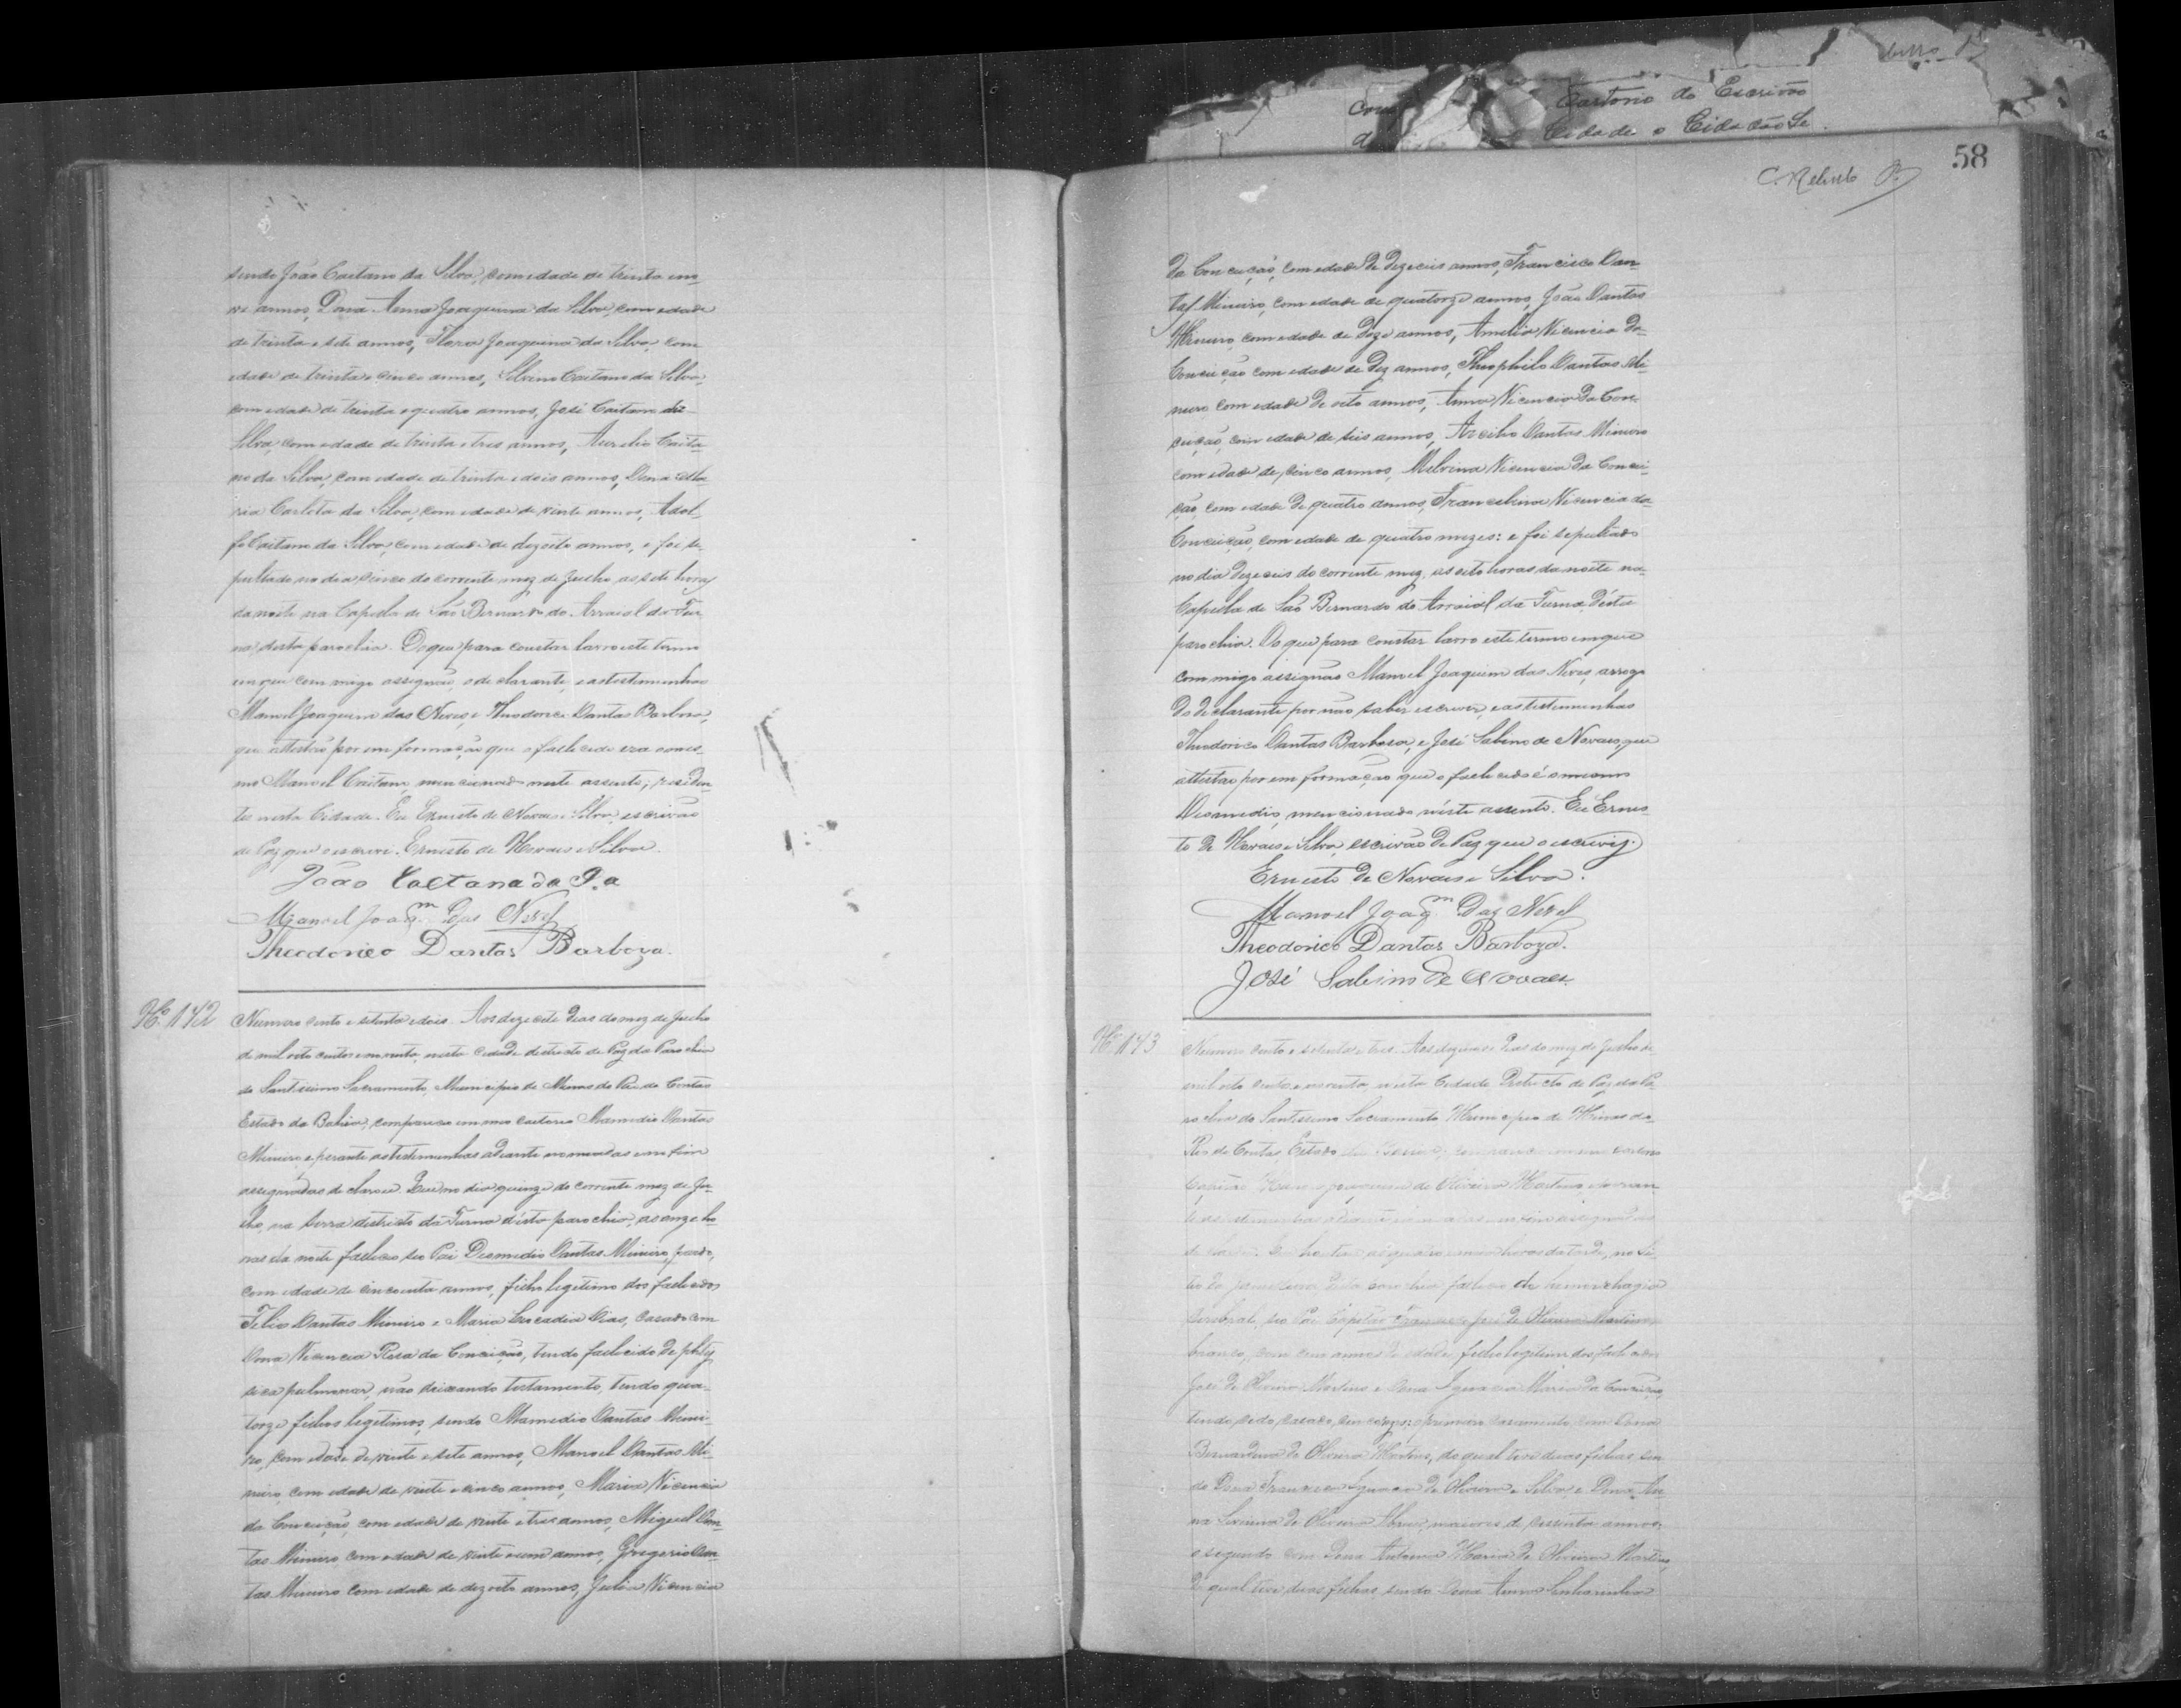 sendo João Caetano da Silva, com edade de trinta em
ve annos, Dona Anna Joaquina da Silva, com edade
de trinta e sete annos, Flora Joaquina da Silva, com
edade de trinta e cinco annos, Silvino Caetano da Silva,
com edade de trinta e quatro annos, José Caetano da
Silva, com edade de trinta e tres annos, Aurelio Caeta-
no da Silva, com edade de trinta e dois annos, Dona
Carlota da Silva, com edade de vinte annos, Adol-
fo Caitano da Silva, com edade de dezoito annos, e foi se-
pultado no dia cinco do corrente mez de Julho, as sete horas
da noite na Capella de São Bernardo do Arraial da Fur
na, desta parochia. Do que para constar lavro este termo
em que commigo assignão, o declarante, e as testemunhas
Manoel Joaquim das Neves, e Theodorico Dantas Barbosa,
que attestão por em formação que o fallecido era o mes-
mo Manoel Caitano, mencionado neste assento; residen-
tes nesta Cidade. Eu Ernesto de Novaes e Silva, escrivão
de Paz que o escrevi. Ernesto de Novaes e Silva.
João Caetano da
Manoel Joaqm das Neves
Theodorico Dantas Barboza.
Nº 172
Numero cento e setenta e dois. Aos dezesete dias do mez de Julho
de mil oito centos e noventa, nesta Cidade districto de Paz da Parochia
do Santissimo Sacramento, Municipio de Minas do Rio de Contas
Estado da Bahia, compareceo em meo cartorio Mamedio Dantas
Mineiro, e perante as testemunhas adiante nomeadas e no fim
assignadas declarou: Que no dia quinze do corrente mez de Ju-
lho, na Serra districto da Furna d'esta parochia, as onze ho-
ras da noite falleceo seo Pai Desmedio Dantas Mineiro, pardo,
com edade de cincoenta annos, filho legitimo dos fallecidos
Felis Dantas Mineiro e Maria Leocadia Dias, casado com
Dona Vicencia Rosa da Conceição, tendo fallecido de phtiy
sica pulmonar, não deixando testamento, tendo qua-
torze filhos legitimos, sendo Mamedio Dantas Minei-
ro, com edade de vinte e sete annos, Manoel Dantas Mi-
neiro, com edade de vinte e cinco annos, Maria Vicencia
da Conceição, com edade de vinte e tres annos, Miguel Dan-
tas Mineiro com edade de vinte e um annos, Gregorio Dan-
tas Mineiro com edade de dezoito annos, Julia Vicencia
Cartorio do Escrivão
Cidade o Cidadão
58
da Conceição, com edade de dezeseis annos, Francisco Dan-
tas Mineiro, com edade de quatorze annos, João Dantas
Mineiro, com edade de doze annos, Amelia Vicencia da
Conceição com edade de dez annos, Theophilo Dantas Mi-
neiro com edade de oito annos, Anna Vicencia da Con-
ceição, com edade de seis annos, Arcilio Dantas Mineiro
com edade de cinco annos, Melvina Vicencia da Concei-
ção, com edade de quatro annos, Francelina Vicencia da
Conceição, com edade de quatro mezes: e foi sepultado
no dia dezeseis do corrente mez, as oito horas da noite na
Capella de São Bernardo do Arraial da Furna, d'esta
parochia. Do que para constar lavro este termo em que
commigo assignão Manoel Joaquim das Neves, arrogo
do declarante por não saber escrever, e as testemunhas
Theodorico Dantas Barbosa, e José Sabino de Novaes, que
attestão por em formação que o fallecido é o mesmo
Desmedio, mencionado n'este assento. Eu Ernes-
to de Novaes e Silva, escrivão de Paz que o escrevij.
Ernesto de Novaes e Silva.
Manoel Joaqm das Neves
Theodorico Dantas Barboza.
José Sabino de Novaes
Nº 173
Numero cento e setenta e tres. Aos dezenove dias do mez de Julho de
mil oito centos e noventa, n'esta Cidade Districto de Paz da Pa-
rochia do Santissimo Sacramento Municipio de Minas do
Rio de Contas, Estado da Bahia, compareceo em meu cartorio
Capitão Joaquim de Oliveira Martins, e peran-
te as testemunhas adiante nomeadas e no fim assignadas
horas da tarde, no Si-
tio falleceo de hemorrhagia
cerebral, seo Pai Capitão Francisco José de Oliveira Martins
branco, com cem annos de edade, filho legitimo dos fallecidos
José de Oliveira Martins e Dona Ignacia Maria da Conceição,
tendo sido casado primeiro casamento com Dona
Bernardina de Oliveira Martins, do qual teve duas filhas, sen
do Dona Francisca Ignacia de Oliveira e Silva, e Dona An-
na de Oliveira maiores de sessenta annos;
o segundo com Dona Antonia Maria de Oliveira Martins,
do qual teve duas filhas, sendo Dona Anna